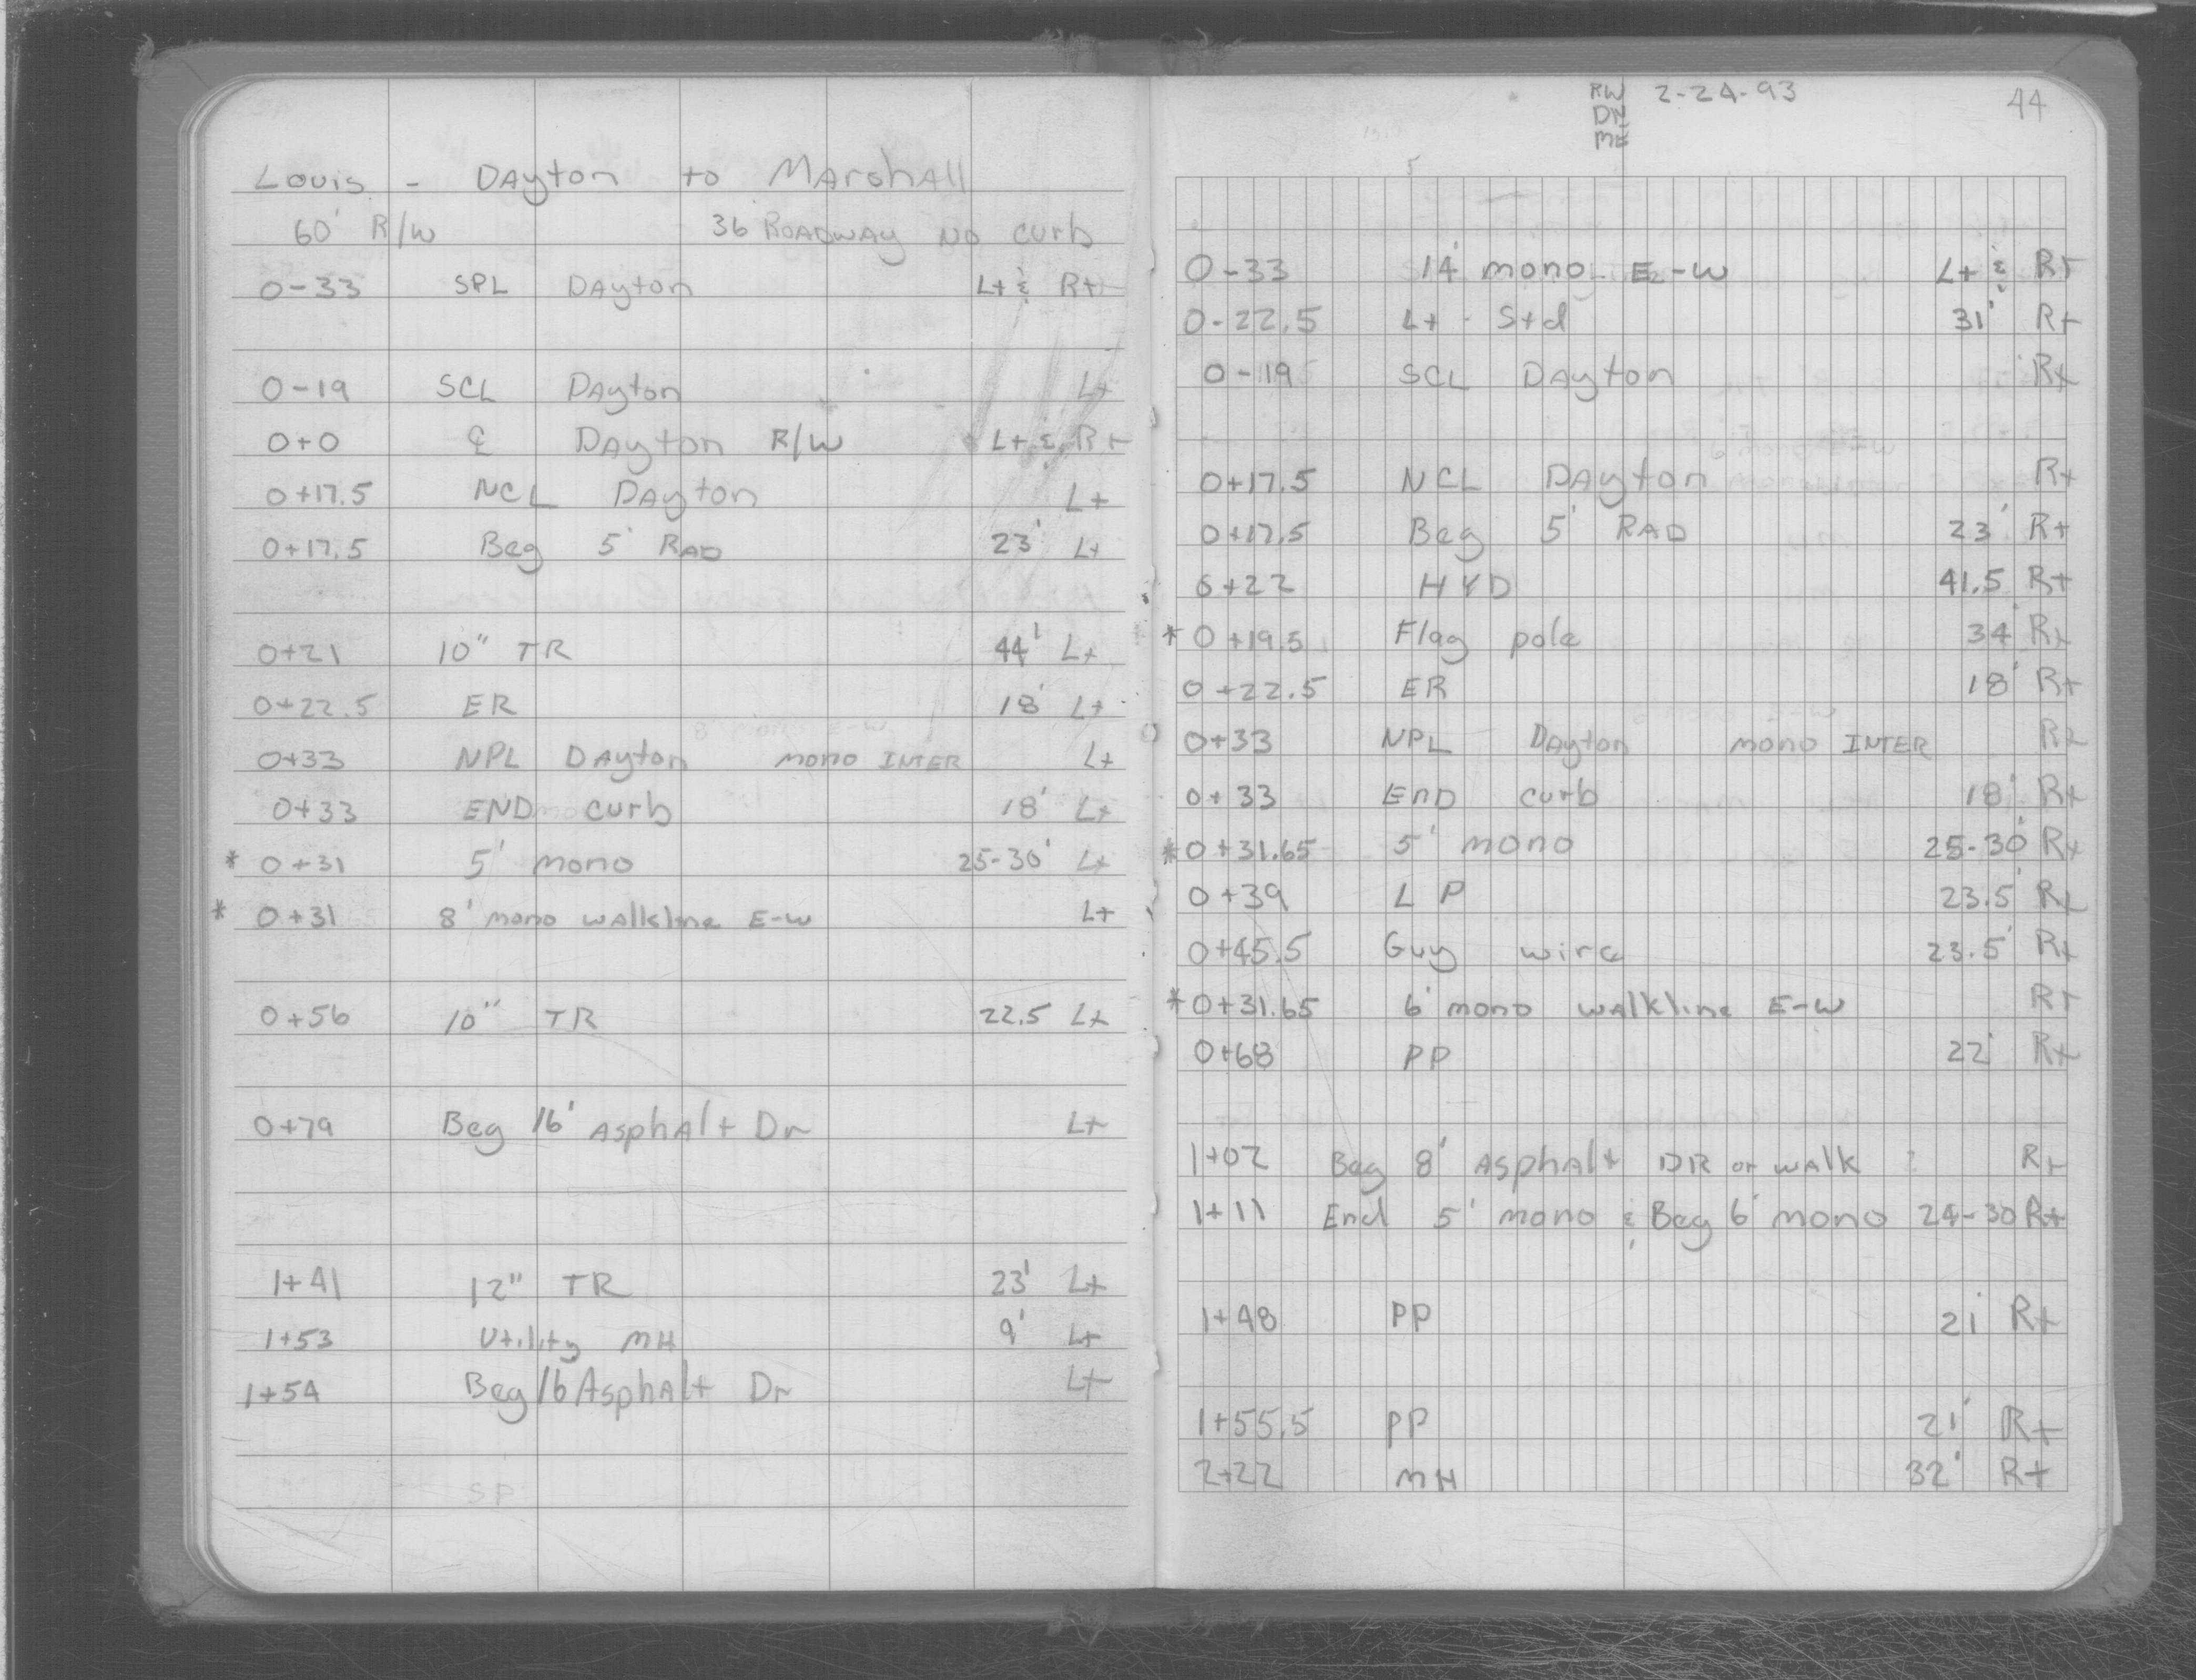 Louis - Dayton to Marshall
60' R/W 36' Roadway no curb
0-33 SPL Dayton Lt & Rt
0-19 SCL Dayton Lt
0+0 ℄ Dayton R/W Lt & Rt
0+17.5 NCL Dayton Lt
0+17.5 Beg 5' RAD 23' Lt
0+21 10" TR 44' Lt
0+22.5 ER 18' Lt
0+33 NPL Dayton mono INTER Lt
0+33 END curb 18' Lt
* 0+31 5' mono 25-30' Lt
* 0+31 8' mono walkline E-W Lt
0+56 10" TR 22.5 Lt
0+79 Beg 16' Asphalt Dr Lt
1+41 12" TR 23' Lt
1+53 Utility MH 9' Lt
1+54 Beg 16 Asphalt Dr Lt
SP
RW 2-24-93 44
DN
0-33 14' mono E-W Lt & Rt
0-22.5 Lt. Std 31' Rt
0-19 SCL Dayton Rt
0+17.5 NCL Dayton Rt
0+17.5 Beg 5' RAD 23' Rt
0+22 HYD 41.5 Rt
* 0+19.5 Flag pole 34' Rt
0+22.5 ER 18' Rt
0+33 NPL Dayton mono INTER Rt
0+33 End curb 18' Rt
* 0+31.65 5' mono 25-30' Rt
0+39 LP 23.5' Rt
0+45.5 Guy wire 23.5' Rt
* 0+31.65 6' mono walkline E-W Rt
0+68 PP 22' Rt
1+02 Beg 8' Asphalt DR or walk ? Rt
1+11 End 5' mono & Beg 6' mono 24-30 Rt
1+48 PP 21' Rt
1+55.5 PP 21' Rt
2+22 MH 32' Rt